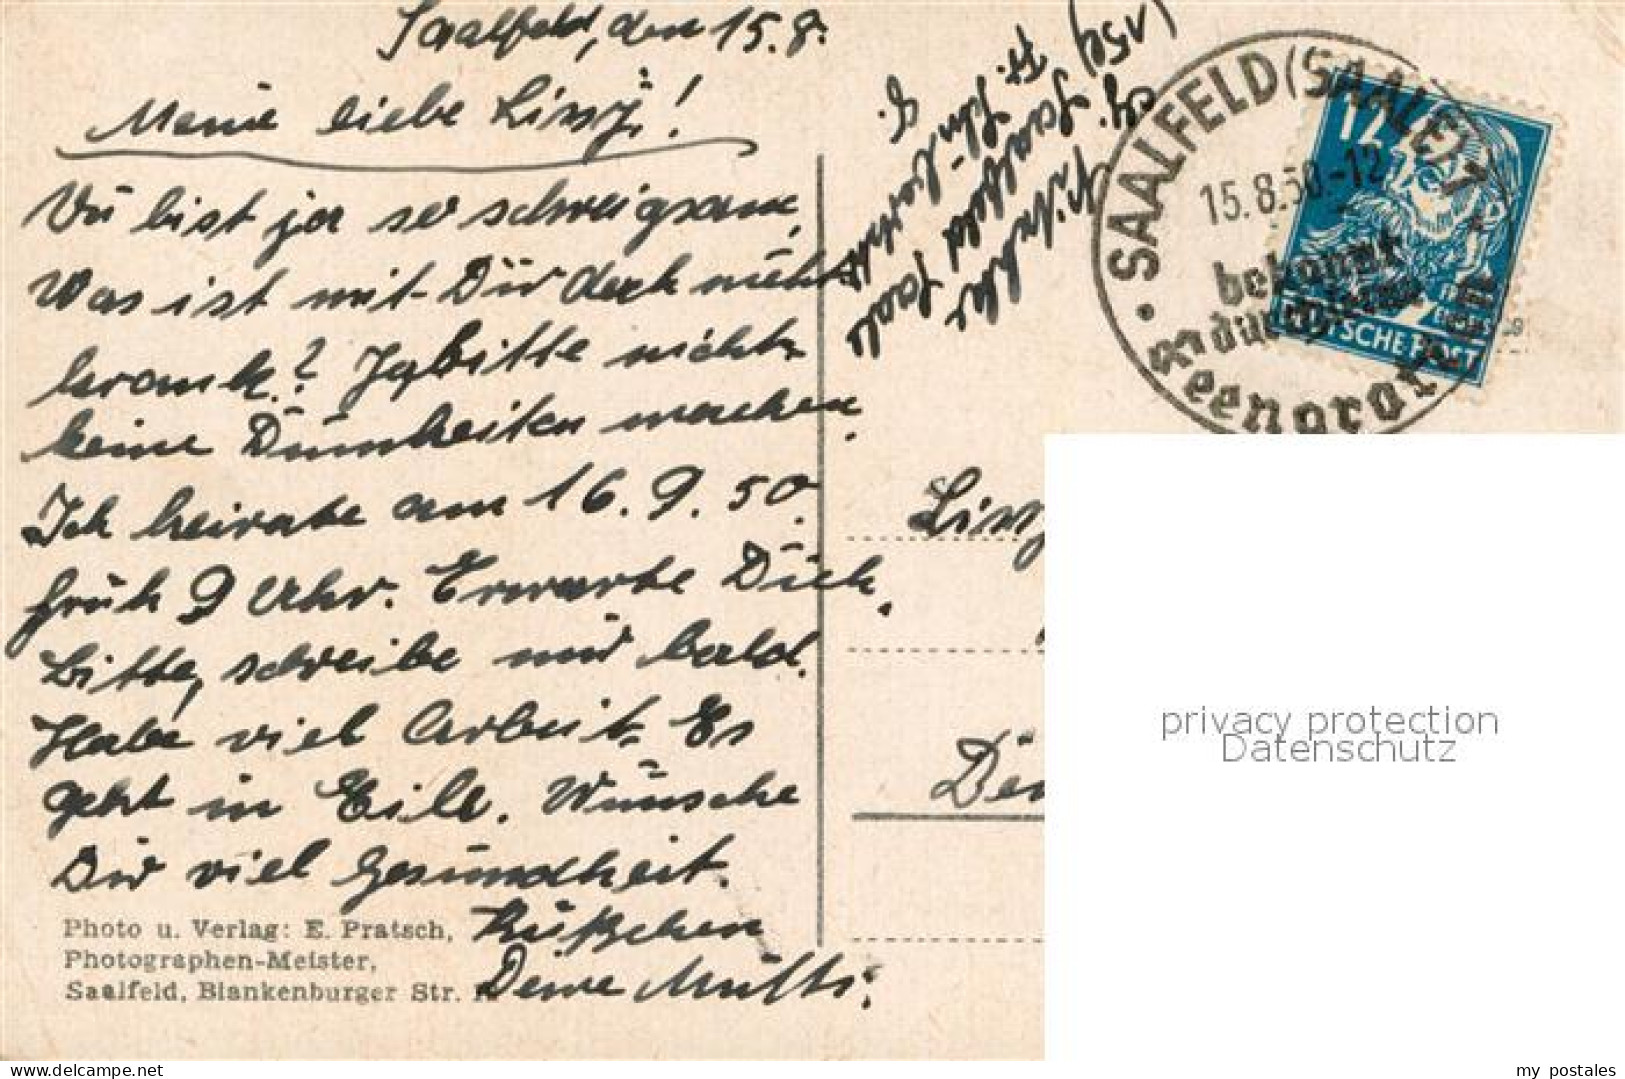 Saalfeld, den 15. 8.
Meine liebe Lissy!
Du bist ja so schweigsam,
Was ist mit Dir doch nicht
krank? Ja bitte nicht
keine Dummheiten machen.
Ich heirate am 16. 9. 50.
früh 9 Uhr. Erwarte Dich.
Bitte, schreibe mir bald.
Habe viel Arbeit. Es
geht in Eile. Wünsche
Dir viel Gesundheit.
Küßchen
Deine Mutti.
Photo u. Verlag: E. Pratsch,
Photographen-Meister,
Saalfeld, Blankenburger Str.
(15a)
Saalfeld Saale
SAALFELD (SAALE) 1
15.8.50.-12
bekannt
durch seine
Feengrotten
12
DEUTSCHE POST
Lissy
privacy protection
Datenschutz
delcampe.net
my_postales